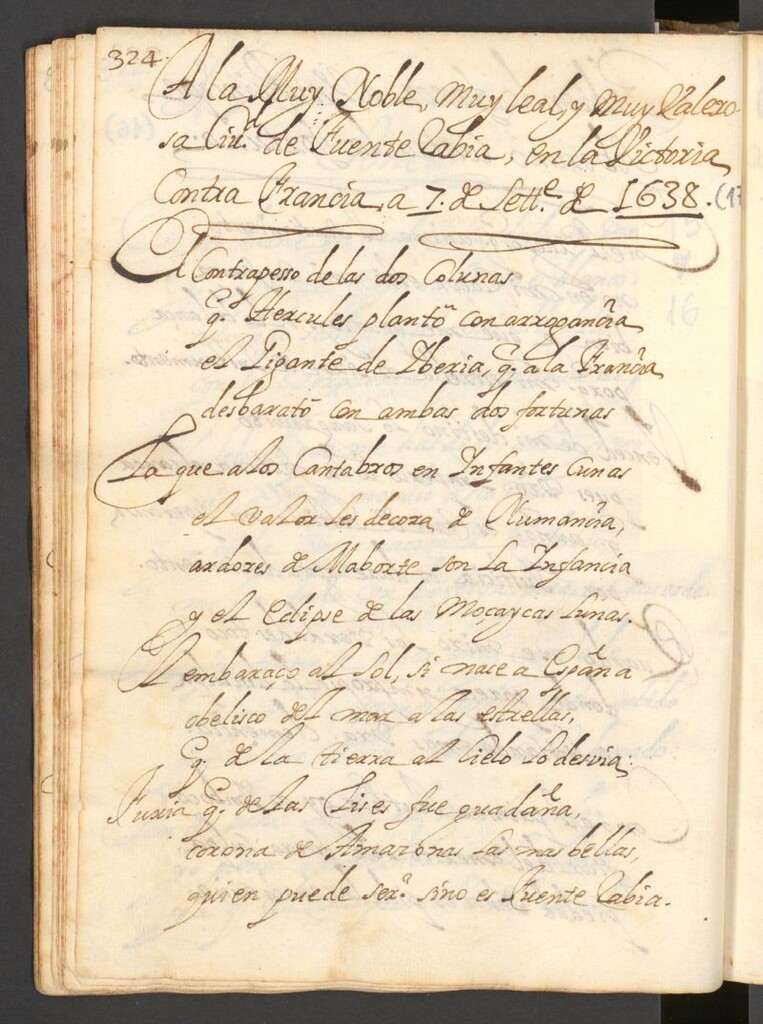 324.
A la Muy Noble, Muy leal, y Muy Valero-
sa Ciu.ᵈ de Fuente Rabia, en la Victoria
Contra Francia, a 7. de Settᵉ. de 1638. (17
El Contrapesso de las dos Colunas
q.ᵉ Hercules plantò con arrogancia
el Gigante de Iberia, q. a la Francia
desbaratò con ambas dos fortunas
La que a los Cantabros en Infantes Cunas
el valor les decora de Numancia,
ardores de Maborte son La Infancia
y el Eclipse de las Moçaycas Lunas.
El embaraço al Sol, si nace a España
obelisco del mar a las estrellas,
q. de la tierra al Cielo lo desvia;
Furia q. de las Lises fue guadaña,
corona de Amazonas las mas bellas,
quien puede ser.ᵃ sino es Fuente Rabia.
16